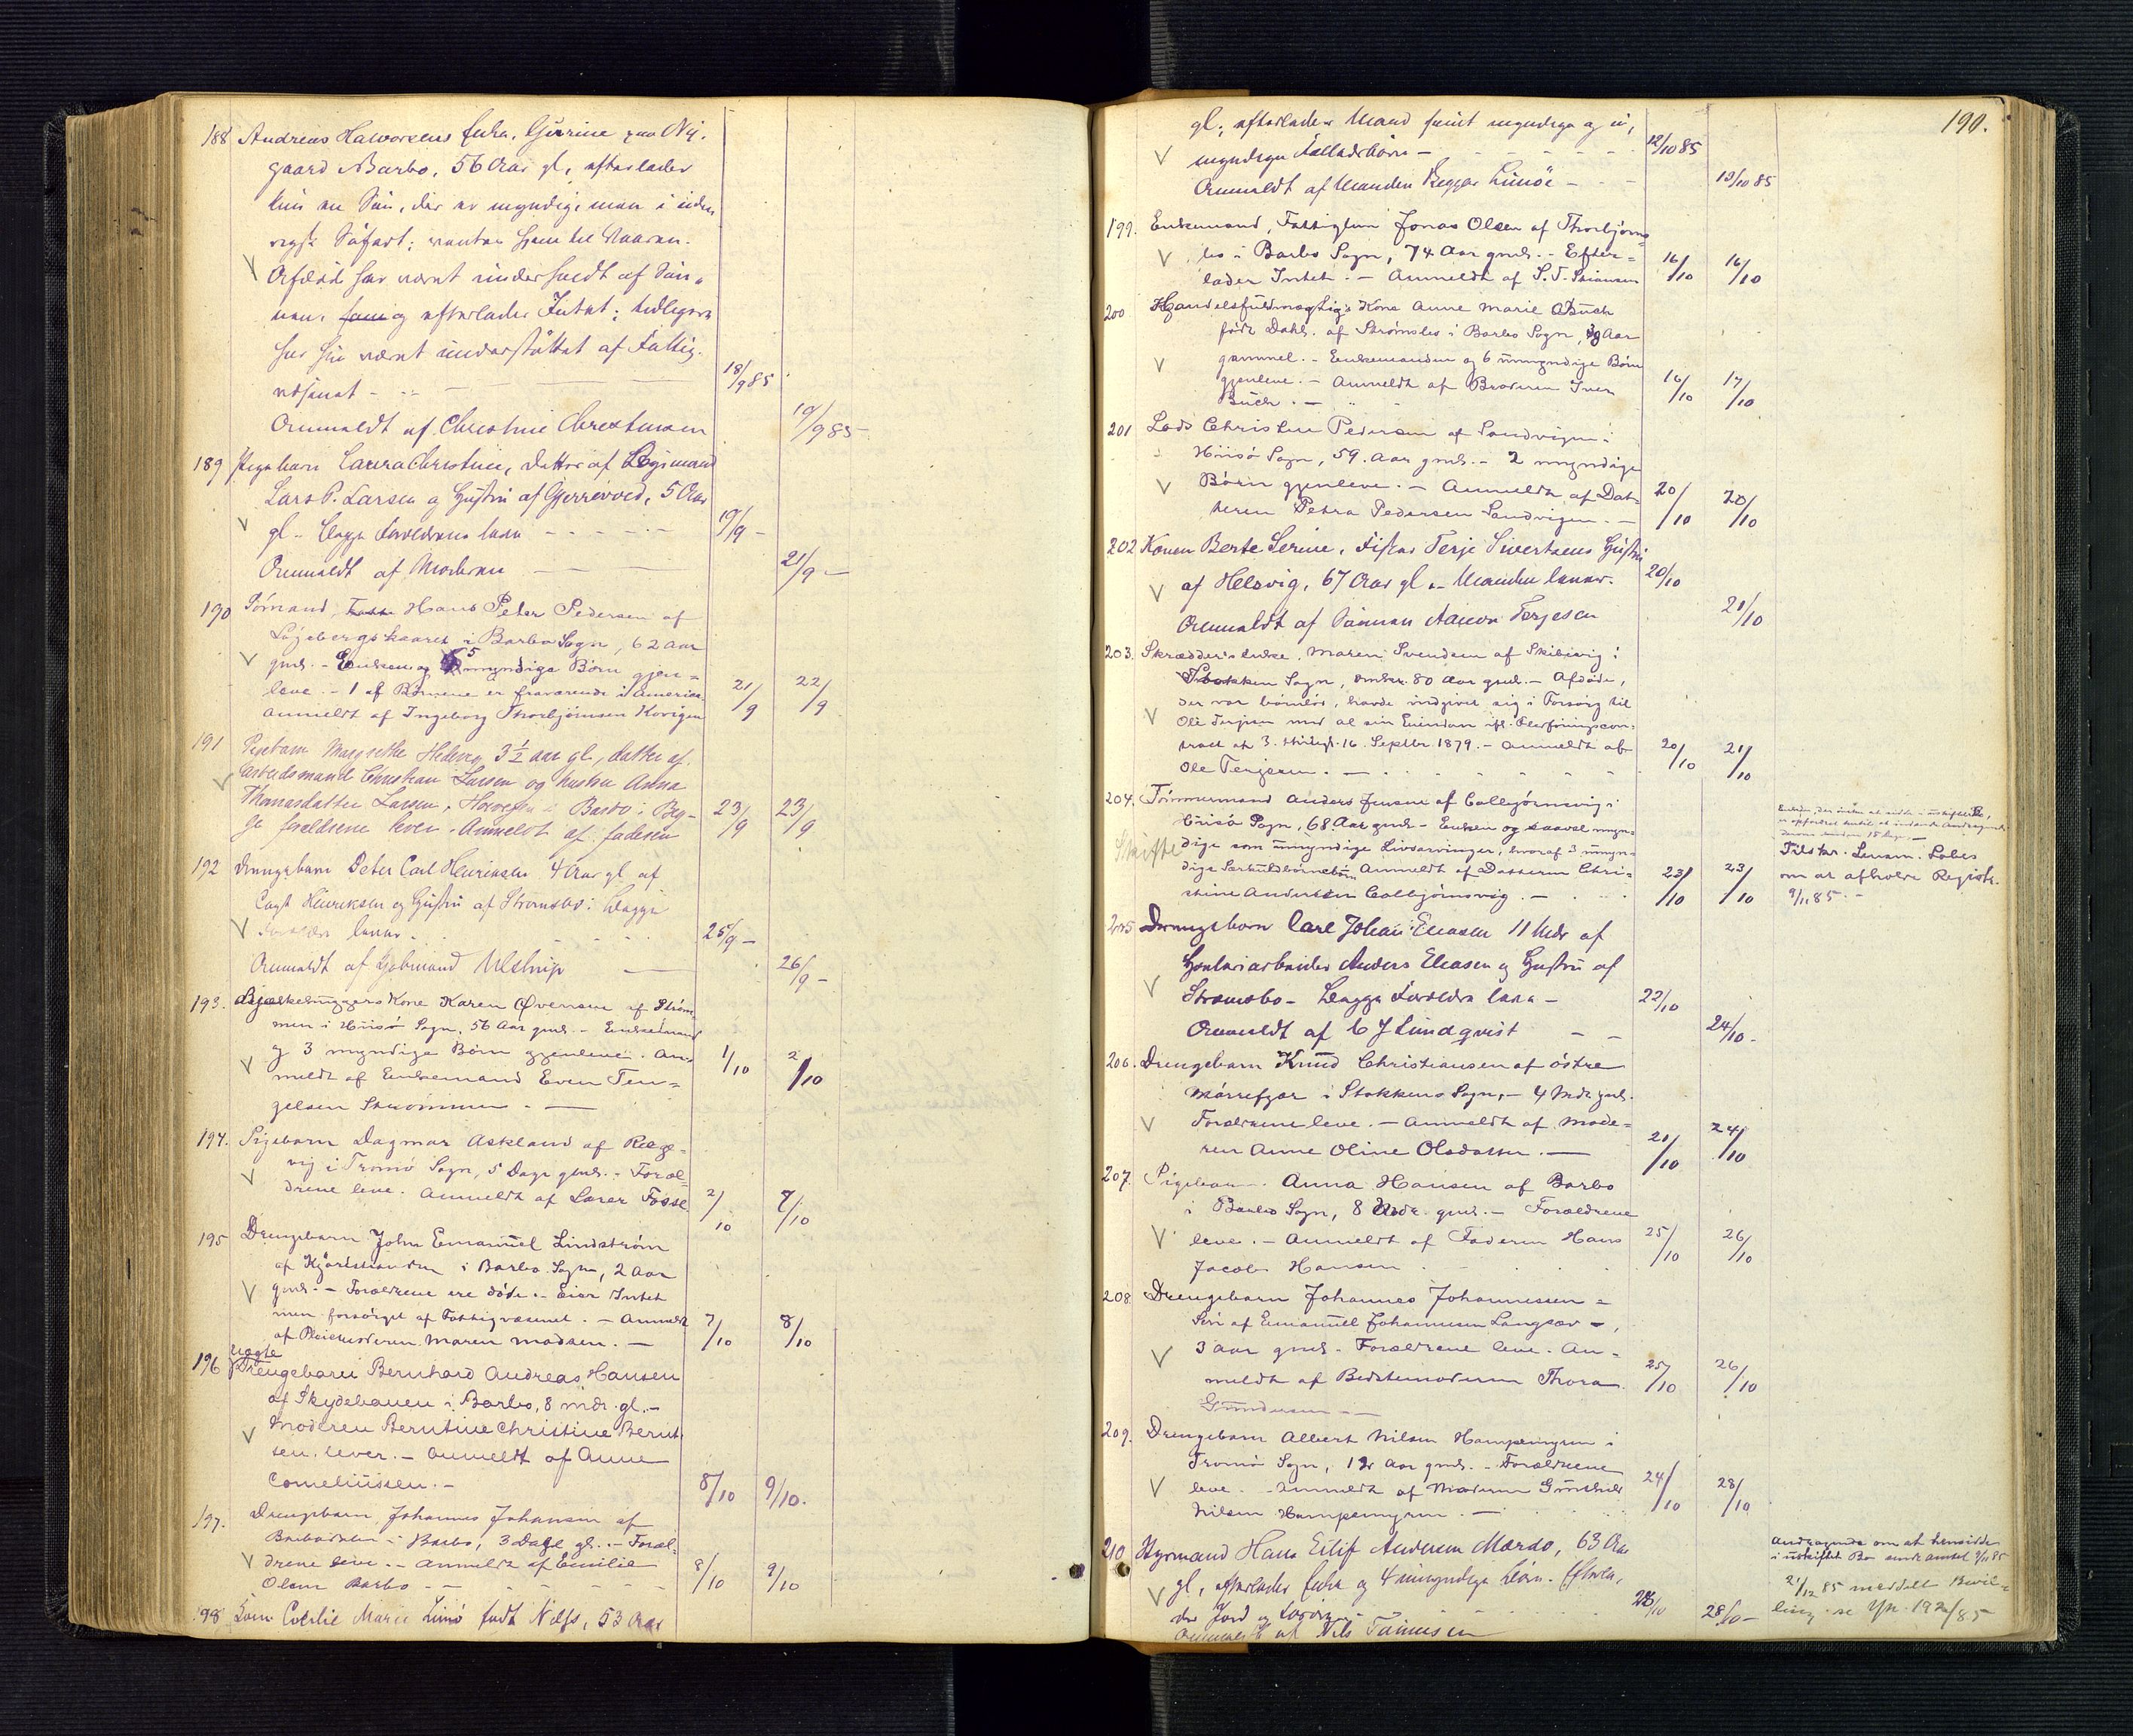 188 Andreas Halvorsens Enke, Gurine paa Ny-
gaard Barbo, 56 Aar gl, efterlader
kun en Søn, der er myndig, men i uden
rigsk Søfart; ventes hjem til Vaaren.
Afdøde har været underholdt af Søn-
nen, og efterlader Intet; tidligere
har hun været understøttet af Fattig-
væsenet - 18/9 85
Anmeldt af Christine Christensen 19/9 85
189 Pigebarn Laura Christine, Datter af Logsmand
Lars P. Larsen og Hustru af Gjerrevoed, 5 Aar
gl - Begge Forældrene leve 19/9 -
Anmeldt af Moderen 21/9 -
190 Sømand Hans Peter Pedersen af
i Barbo Sogn, 62 Aar
gml. - Enken og 5 myndige Børn gjen-
leve. - 1 af Børnene er fraværende i Amerika. 21/9 22/9
Anmeldt af Ingeborg Thorbjørnsen
191 Pigebarn Margrethe Hedevig 3½ aar gl, datter af
Arbeidsmand Christian Larsen og hustru Anna
Thomasdatter Larsen, Barbo. Beg-
ge forældrene lever. Anmeldt af faderen 23/9 23/9
192 Drengebarn Peter Carl Henriksen 4 Aar gl af
Henriksen og Hustru af Strømsbo. Begge
Forældre lever. 25/9 -
Anmeldt af Ulstrup 26/9 -
193. Kone Karen Evensen af Strøm-
men i Hiisø Sogn, 56 Aar gml. - Enkemand
og 3 myndige Børn gjenleve. An- 1/10 2/10
meldt af Enkemand Even Ten-
gelsen Strømmen. -
194. Pigebarn Dagmar Askland af Rægе-
vig i Tromø Sogn, 5 Dage gml. - Foræl-
drene leve. Anmeldt af Lærer Fosse 2/10 7/10
195 Drengebarn John Emanuel Lindstrøm
af i Barbo Sogn, 2 Aar
gml. - Forældrene ere døde. - Eier Intet
men forsørget af Fattigvæsenet. - Anmeldt 7/10 8/10
af Pleiemoderen Maren Madsen. -
196 uægte
Drengebarn Bernhard Andreas Hansen
af Skydebanen i Barbo, 8 mdr. gl. -
Moderen Berntine Christine Bernt-
sen lever. - Anmeldt af Anne
Corneliussen. - 8/10 9/10.
197. Drengebarn Johannes Johansen af
i Barbo, 3 Dage gl. - Foræl-
drene leve. - Anmeldt af Emilie
Olsen Barbo 8/10 9/10
198 Cecilie Marie Limø født Nilss, 53 Aar
190.
gl, efterlader Mand samt myndige og u,
myndige Fælledsbørn - 12/10 85
Anmeldt af Manden - 13/10 85
199. Enkemand, Fattiglem Jonas Olsen af Thorbjørns-
bo i Barbo Sogn, 74 Aar gml. - Efter-
lader Intet. - Anmeldt af 16/10 16/10
200 Handelsfuldmægtigs Kone Anne Marie Buch
født Dahl. af Strømsbo i Barbo Sogn, 39 Aar
gammel. - Enkemanden og 6 umyndige Børn
gjenleve. - Anmeldt af Broderen Iver 16/10 17/10
Buch. -
201 Lods Christen Pedersen af Sandvigen i
Hiisø Sogn, 59 Aar gml. - 2 myndige
Børn gjenleve. - Anmeldt af Dat- 20/10 20/10
teren Petra Pedersen Sandvigen. -
202 Konen Berte Serine, Fisker Terje Sivertsens Hustru
af Helsvig, 67 Aar gl. - Manden lever. 20/10
Anmeldt af Sønnen Aanon Terjesen 21/10
203. Skrædders Enke, Maren Svendsen af Skilsvig i
Stokken Sogn, omkr. 80 Aar gml. - Afdøde,
der var barnløs, havde indgivet sig i Forsørg til
Ole Terjesen med al sin Eiendom ifl.
16. Septbr. 1879. - Anmeldt af 20/10 21/10
Ole Terjesen. -
204. Tømmermand Anders Jensen af Colbjørnsvig i
Hiisø Sogn, 68 Aar gml. - Enken og saavel myn-
Skifte dige som umyndige Livsarvinger, hvoraf 3 umyn-
dige Anmeldt af Datteren Chri- 23/10 23/10
stine Andersen Colbjørnsvig. -
Tilskr. Lensm. Lobes
om at afholde Registr.
9/11 85. -
205 Drengebarn Carl Johan Eliasen 11 Mdr af
Anders Eliasen og Hustru af
Strømsbo - Begge Forældre leve - 22/10
Anmeldt af C J Lundqvist 24/10 -
206. Drengebarn Knud Christiansen af østre
Mørrefjær i Stokkens Sogn, - 4 Mdr gml.
Forældrene leve. - Anmeldt af Mode-
ren Anne Oline Olsdatter. - 21/10 24/10
207. Pigebarn Anna Hansen af Barbo
i Barbo Sogn, 8 Mdr. gml. - Forældrene
leve. - Anmeldt af Faderen Hans 25/10 26/10
Jacob Hansen
208. Drengebarn Johannes Johannessen -
Søn af Emanuel Johannesen Langsæv -,
3 Aar gml. Forældrene leve. An-
meldt af Bedstemoderen Thora 25/10 26/10
Gundersen -
209. Drengebarn Albert Nilsen Hampemyren i
Tromø Sogn, 12 Aar gml. - Forældrene
leve. - Anmeldt af Moderen Gunhild 24/10 28/10
Nilsen Hampemyren. -
210 Styrmand Hans Eilif Andersen Mærdø, 63 Aar
gl, efterlader Enke og 4 umyndige Børn.
Jord og 28/10 28/10 -
Anmeldt af Nils
Andragende om at hensidde
i uskiftet Bo sendt Amtet 9/11 85
21/12 85 meddelt Bevil-
ling. se 192/85